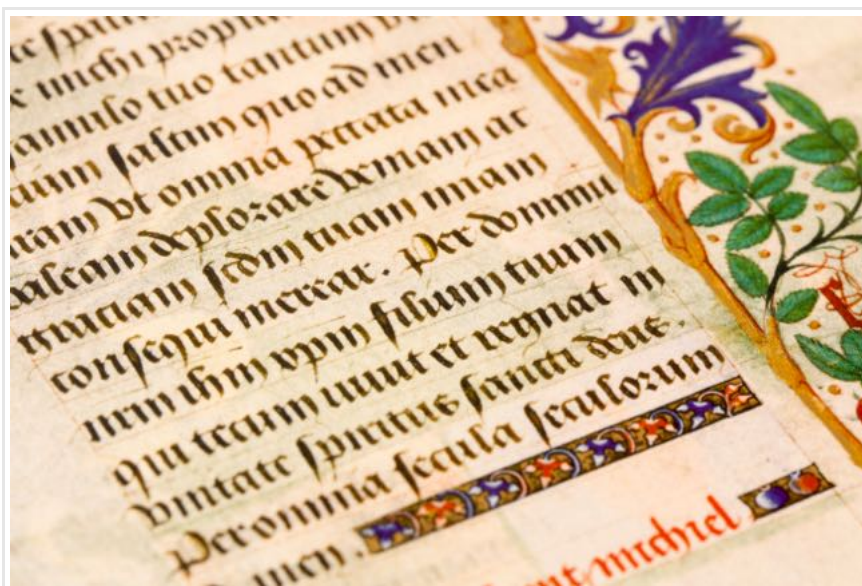 michi propi
famulo tuo tantum
saltim quo ad meu
vt omnia peccata mea
valeam deplorare demam ac
graciam scdm tuam miam
consequi merear. Per dominu
nrm ihm xpm filium tuum
qui tecum viuit et regnat in
vnitate spiritus sancti deus.
Per omnia secula seculorum
Amen.
michiel